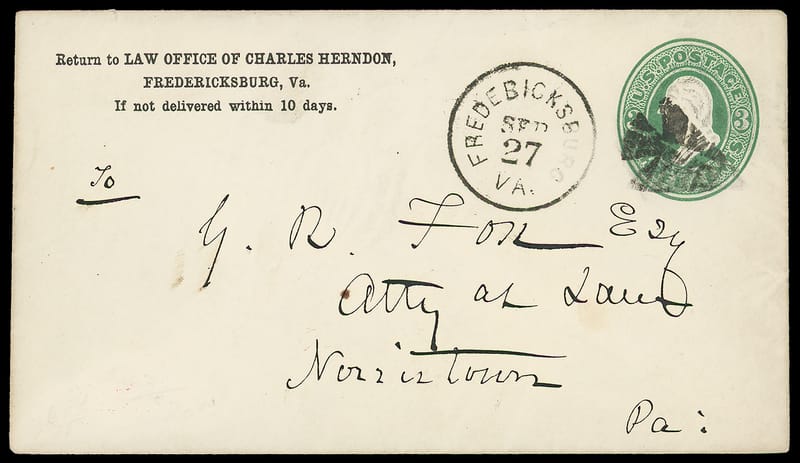 Return to LAW OFFICE OF CHARLES HERNDON,
FREDERICKSBURG, Va.
If not delivered within 10 days.
FREDERICKSBURG
SEP
27
VA.
U.S. POSTAGE
3
To
G. R. Fox Esq
Atty at Law
Norristown
Pa: